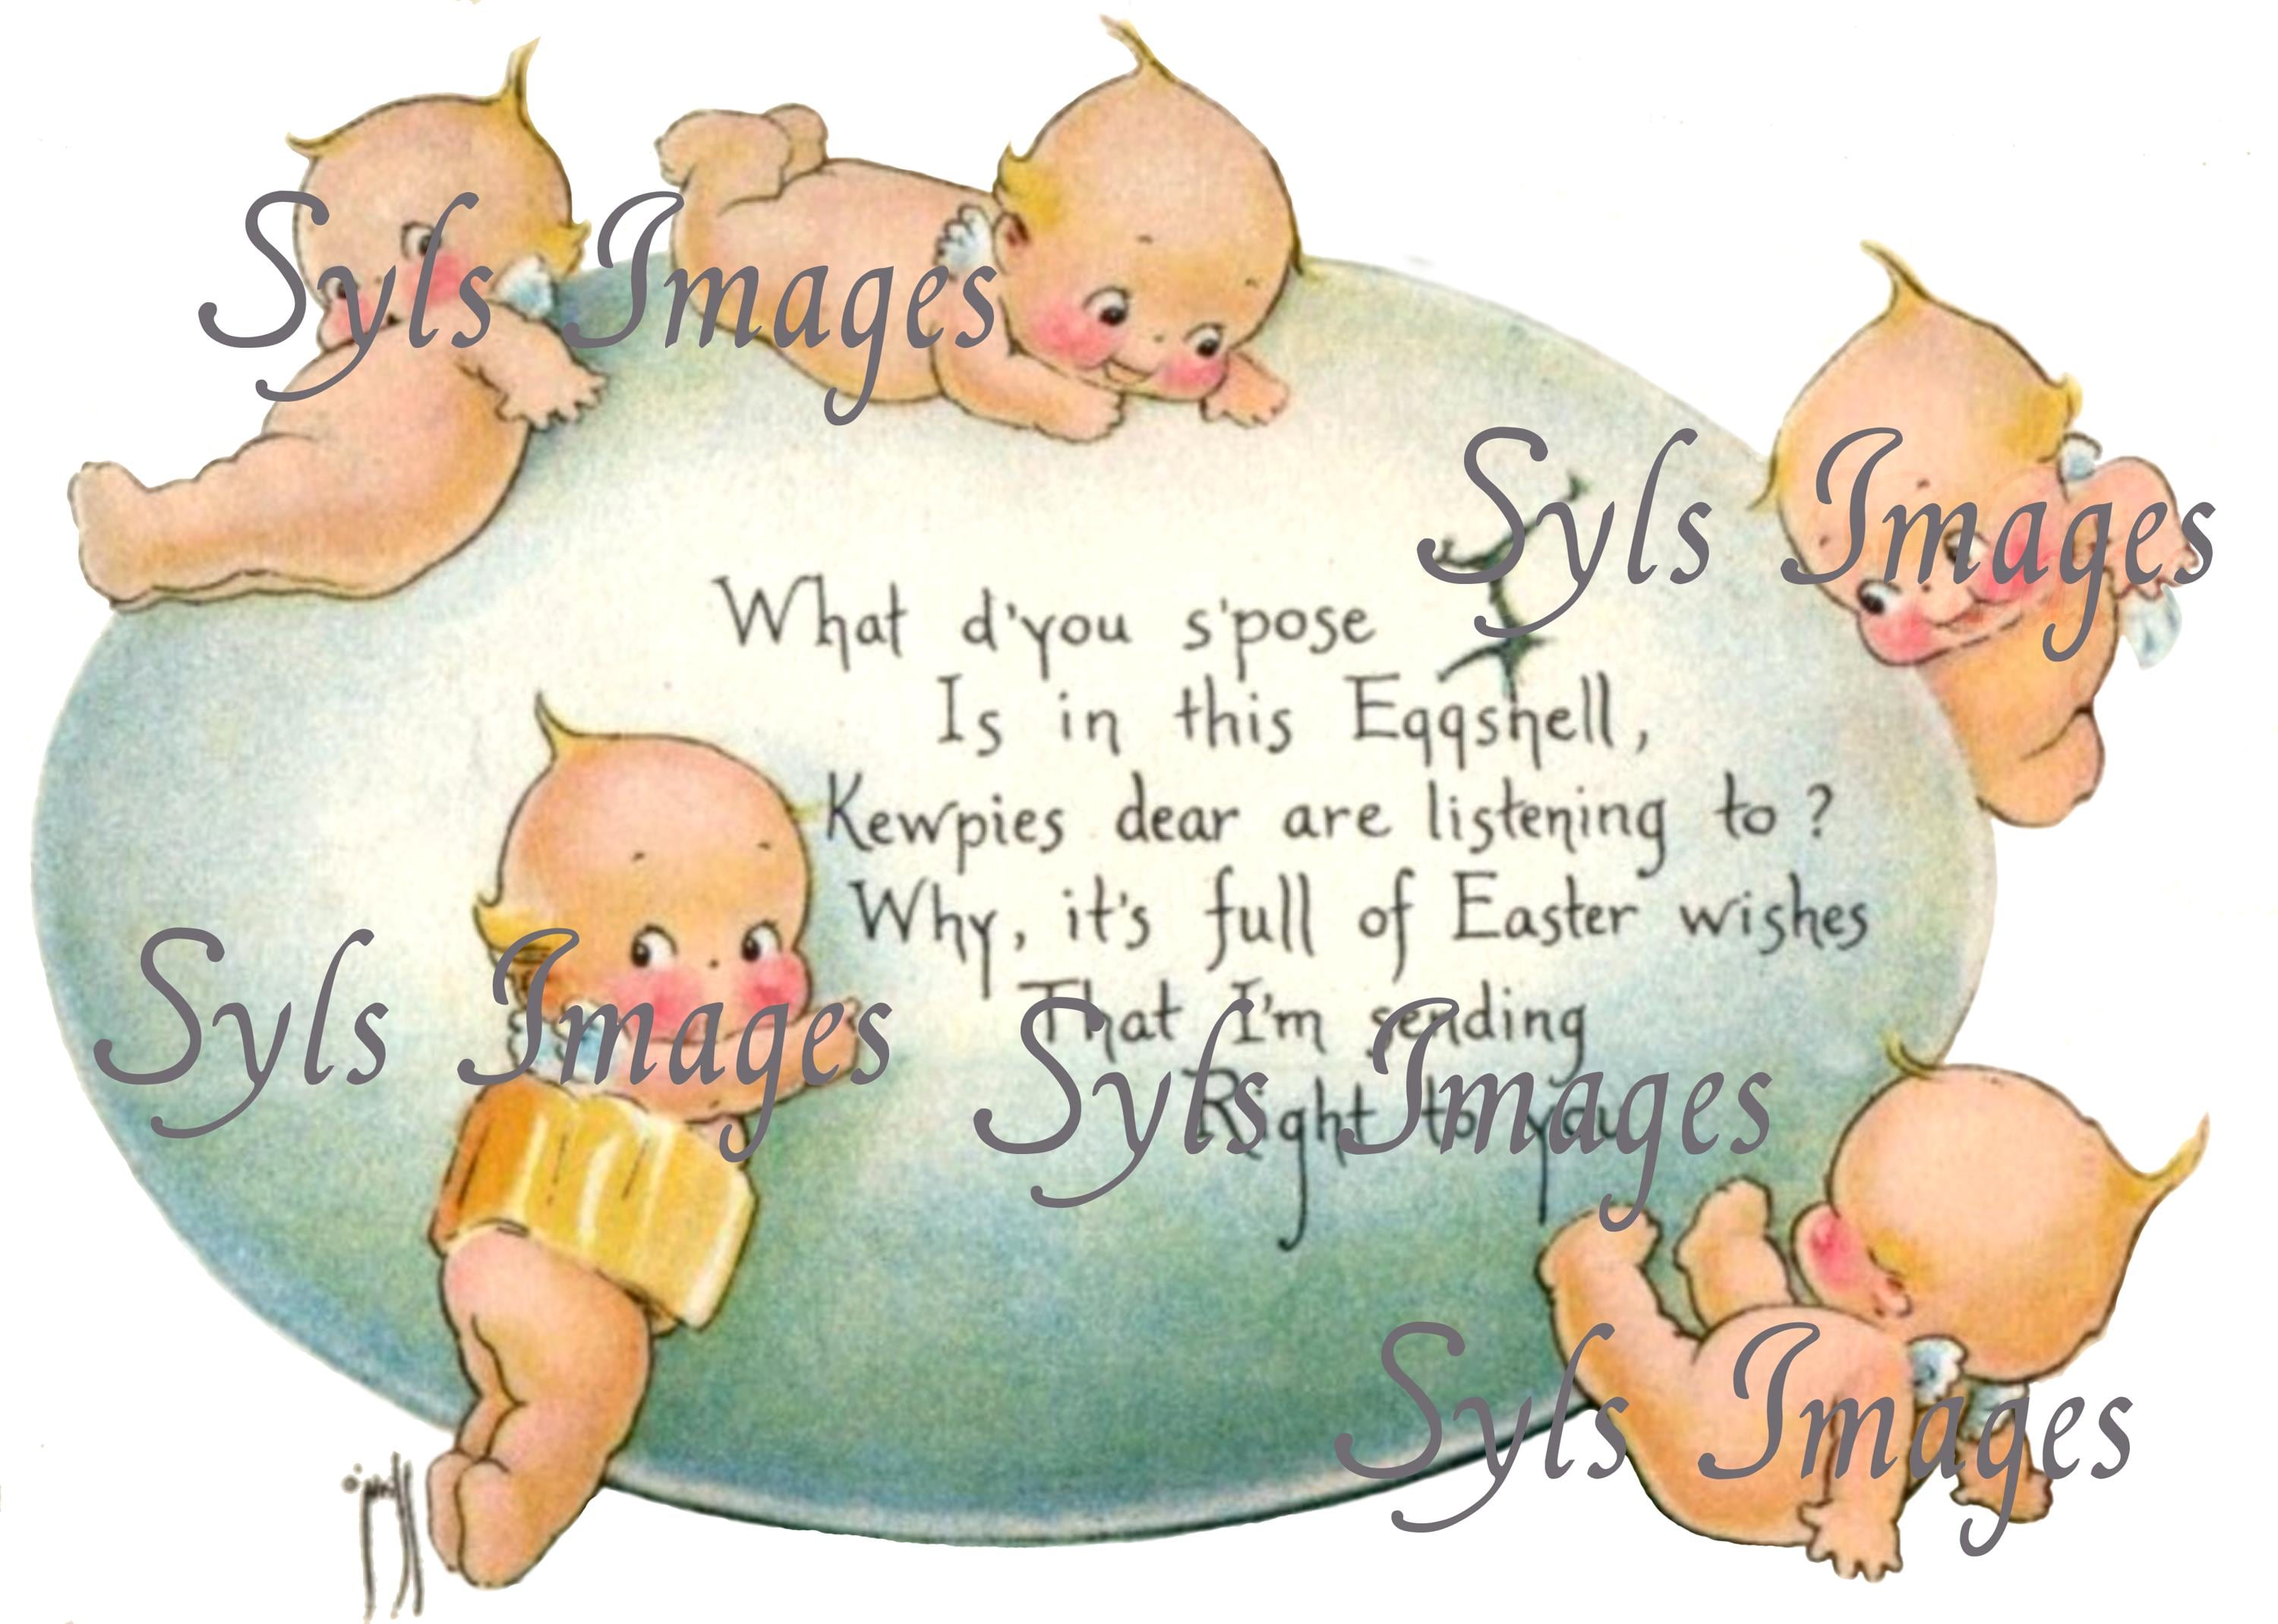 Syls Images
Syls Images
What d'you s'pose
Is in this Eggshell,
Kewpies dear are listening to?
Why, it's full of Easter wishes
That I'm sending
Right to you
Syls Images
Syls Images
Syls Images
O'Neill